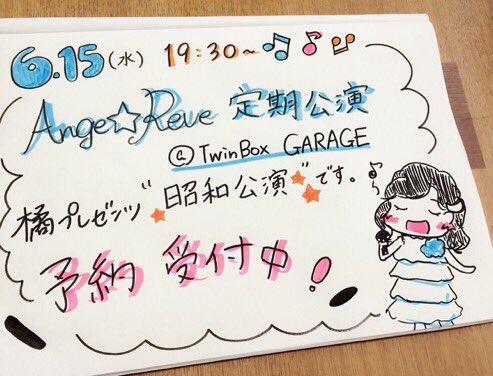 6.15(水) 19:30~
Ange☆Reve 定期公演
@TwinBox GARAGE
橘プレゼンツ"昭和公演"です。
予約 受付中!